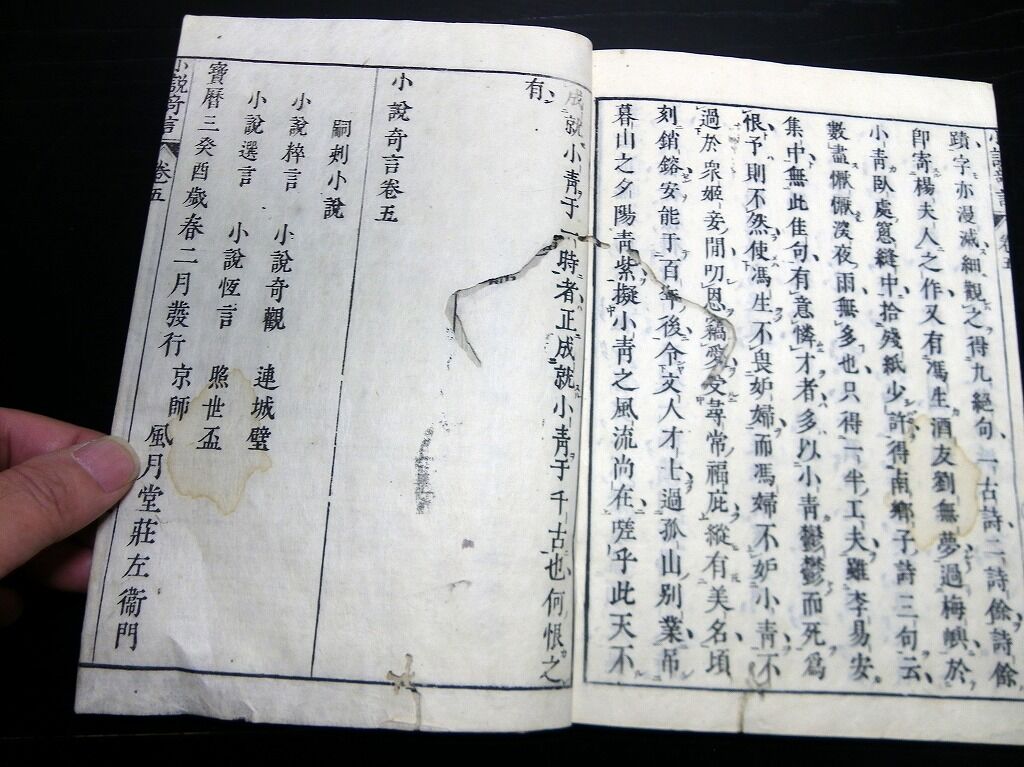 蹟字亦漫滅細觀之得九絕句一古詩二詩餘詩餘
卽寄楊夫人之作又有馮生酒友劉無夢過梅嶼於
小青臥處窻縫中拾殘紙少許得南鄉子詩三句云
數盡懨懨深夜雨無多也只得一半工夫雖李易安
集中無此佳句有意憐才者多以小青鬱鬱而死爲
恨予則不然使馮生不畏妒婦而馮婦不妒小青不
過於衆姬妾閒叨恩竊愛受尋常福庇縱有美名頃
刻銷鎔安能于百年後令文人才士過孤山別業吊
暮山之夕陽青紫擬小青之風流尚在嗟乎此天不
成就小青于一時者正成就小青于千古也何恨之
有
小說奇言卷五
嗣刻小說
小說粹言 小說奇觀 連城璧
小說選言 小說恆言 照世盃
寶曆三癸酉歲春二月發行 京師 風月堂莊左衞門
小說奇言 卷五